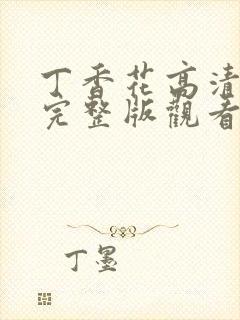 丁香花高清
完整版觀看
丁墨